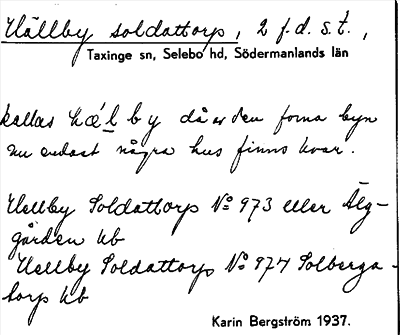 Hällby soldattorp, 2 f.d. s.t.,
Taxinge sn, Selebo hd, Södermanlands län
kallas hǽlby då av den forna byn
nu endast några hus finns kvar.
Hellby Soldattorp No 973 eller Älg-
gården kb
Hellby Soldattorp No 974 Solberga-
torp kb
Karin Bergström 1937.